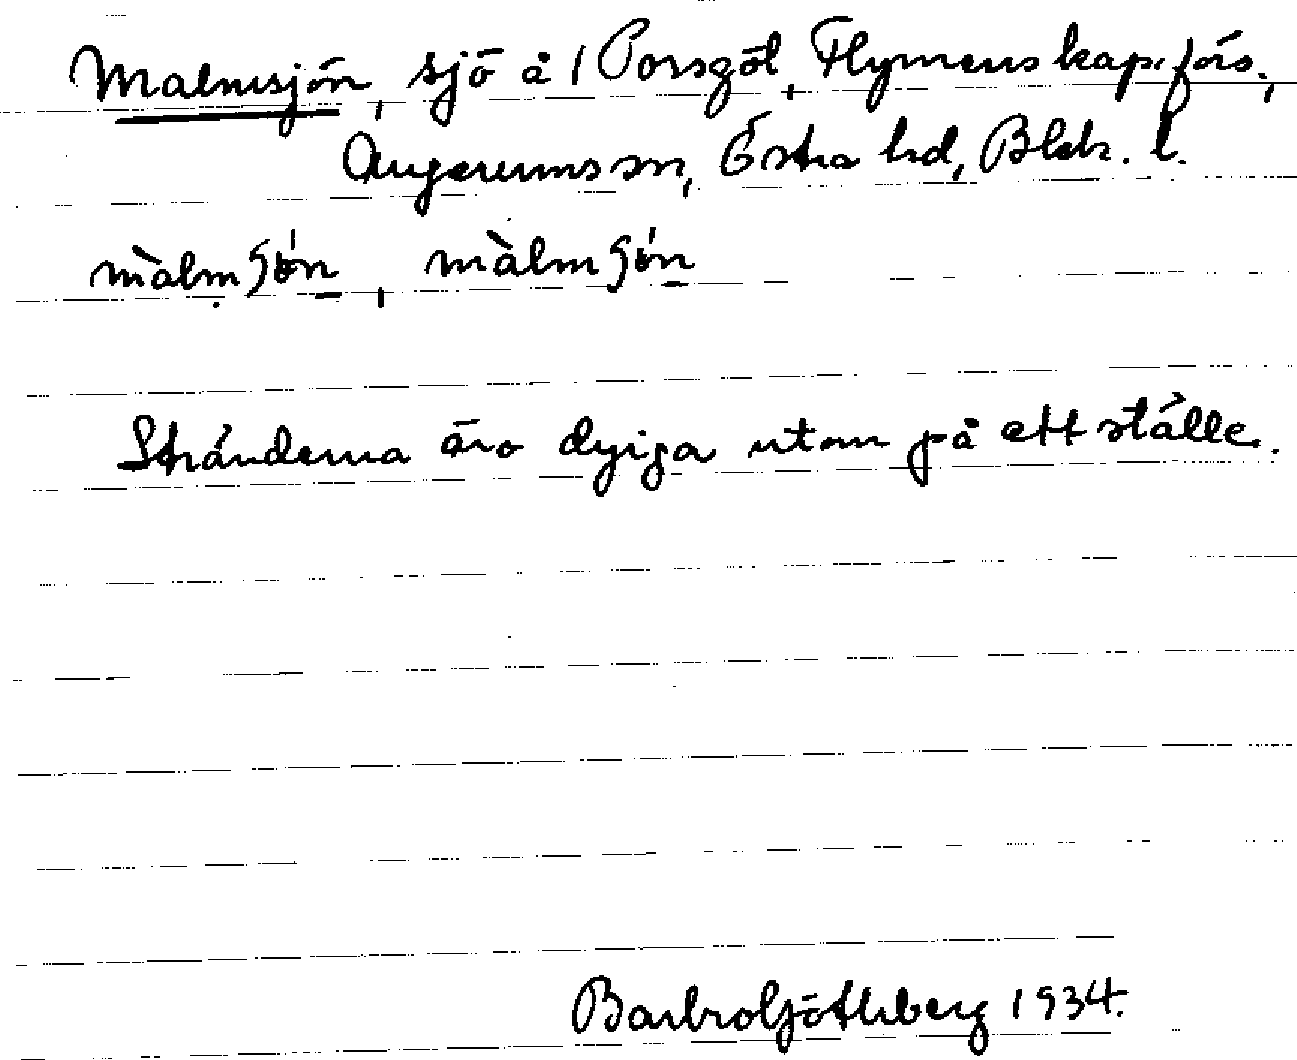 Malmsjön, sjö å 1 Porsgöl, Flymens kap. förs.,
Augerums sn, Östra hd, Blek. l.
Stränderna äro dyiga utom på ett ställe.
Barbro Göthberg 1934.